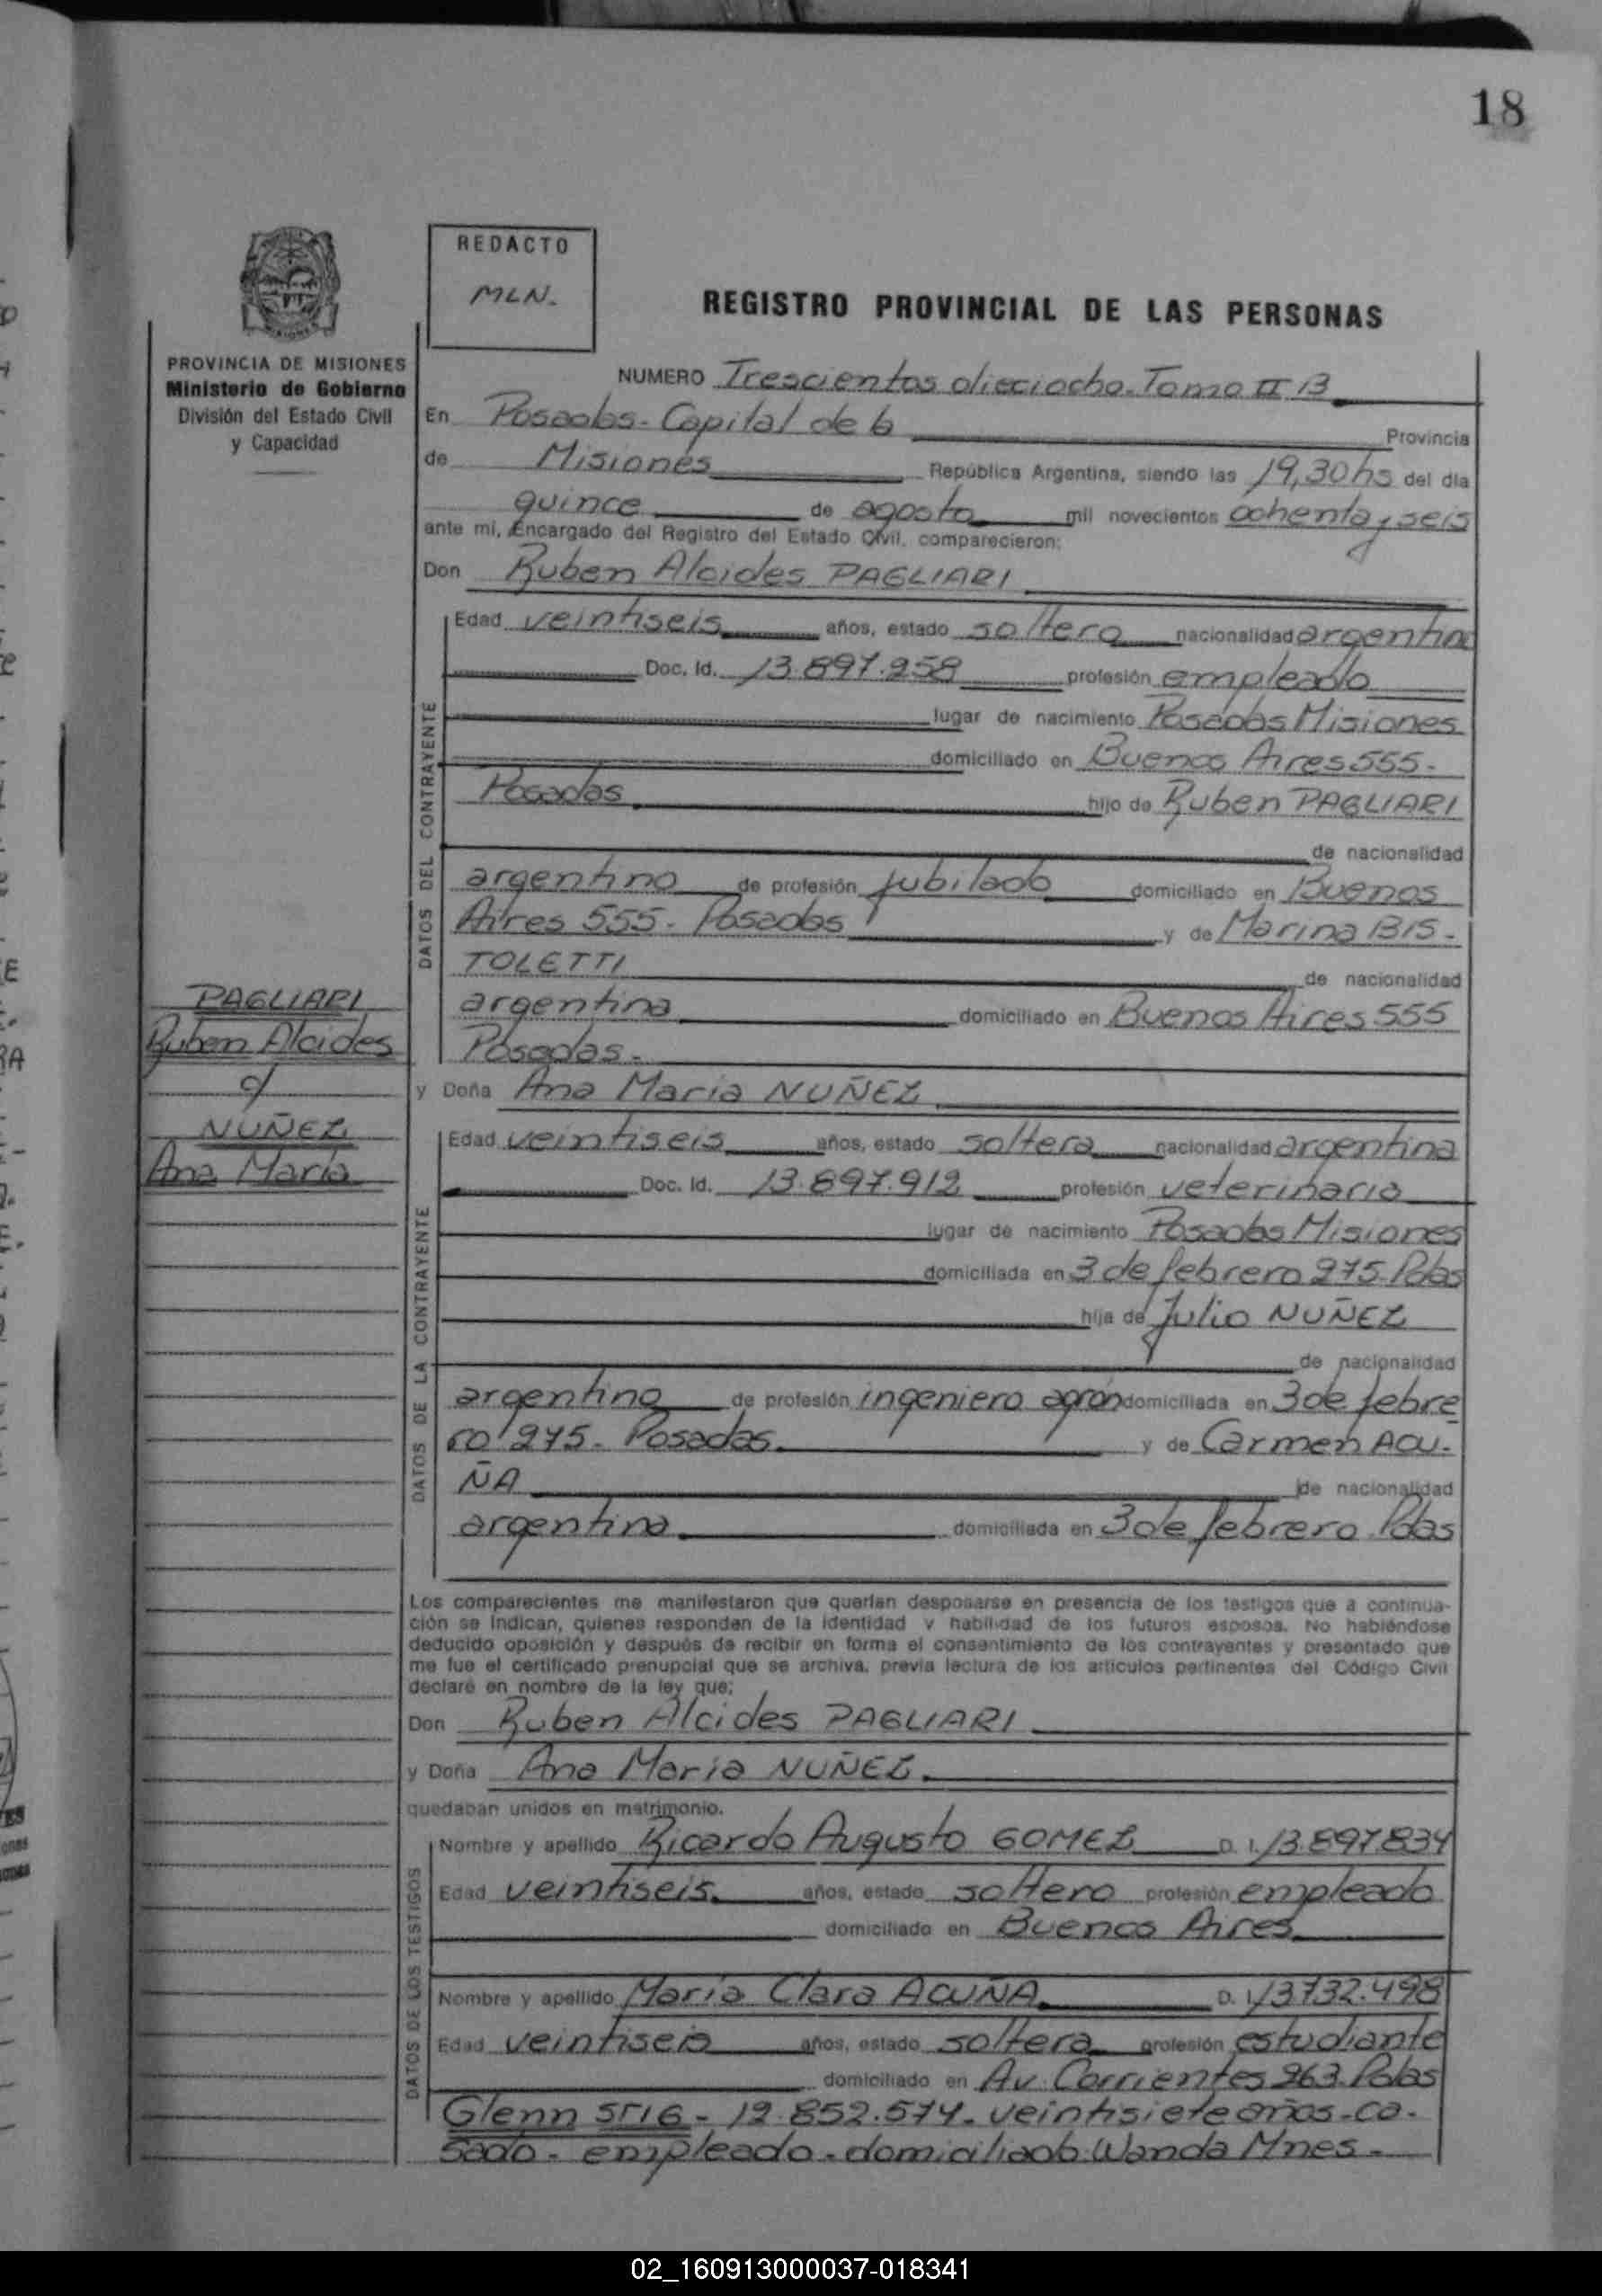 18
REDACTO
MLN.
REGISTRO PROVINCIAL DE LAS PERSONAS
PROVINCIA DE MISIONES
Ministerio de Gobierno
División del Estado Civil
y Capacidad
NUMERO Trescientos dieciocho. Tomo II B
En Posadas - Capital de la Provincia
de Misiones República Argentina, siendo las 19,30 hs del día
quince de agosto mil novecientos ochenta y seis
ante mi, Encargado del Registro del Estado Civil, comparecieron:
Don Ruben Alcides PAGLIARI
DATOS DEL CONTRAYENTE
Edad veintiseis años, estado soltero nacionalidad argentino
Doc. Id. 13.897.258 profesión empleado
lugar de nacimiento Posadas Misiones
domiciliado en Buenos Aires 555-
Posadas hijo de Ruben PAGLIARI
de nacionalidad
argentino de profesión jubilado domiciliado en Buenos
Aires 555- Posadas y de Marina BIS-
TOLETTI de nacionalidad
argentina domiciliado en Buenos Aires 555
Posadas-
PAGLIARI
Ruben Alcides
c/
NUÑEZ
Ana María
y Doña Ana Maria NUÑEZ.
DATOS DE LA CONTRAYENTE
Edad veintiseis años, estado soltera nacionalidad argentina
Doc. Id. 13.897.912 profesión veterinaria
lugar de nacimiento Posadas Misiones
domiciliada en 3 de febrero 275-Pdas
hija de Julio NUÑEZ
de nacionalidad
argentino de profesión ingeniero agrón domiciliada en 3 de febre
ro 275- Posadas. y de Carmen ACU-
ÑA de nacionalidad
argentina. domiciliada en 3 de febrero. Pdas
Los comparecientes me manifestaron que querían desposarse en presencia de los testigos que a continua-
ción se indican, quienes responden de la identidad y habilidad de los futuros esposos. No habiéndose
deducido oposición y después de recibir en forma el consentimiento de los contrayentes y presentado que
me fue el certificado prenupcial que se archiva, previa lectura de los artículos pertinentes del Código Civil
declaré en nombre de la ley que:
Don Ruben Alcides PAGLIARI
y Doña Ana Maria NUÑEZ.
quedaban unidos en matrimonio.
DATOS DE LOS TESTIGOS
Nombre y apellido Ricardo Augusto GOMEZ D. I. 13.897.834
Edad veintiseis. años, estado soltero profesión empleado
domiciliado en Buenos Aires
Nombre y apellido María Clara ACUÑA. D. I. 13732.498
Edad veintiseis años, estado soltera profesión estudiante
domiciliado en Av. Corrientes 263. Pdas
Glenn STIG- 12.852.574- veintisiete años-ca-
sado- empleado-domiciliado Wanda Mnes-
02_160913000037-018341